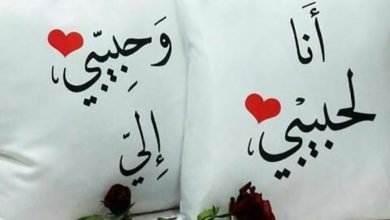 أَنَا
لحبيبْي
وَحِبيبّي
إِليَّ